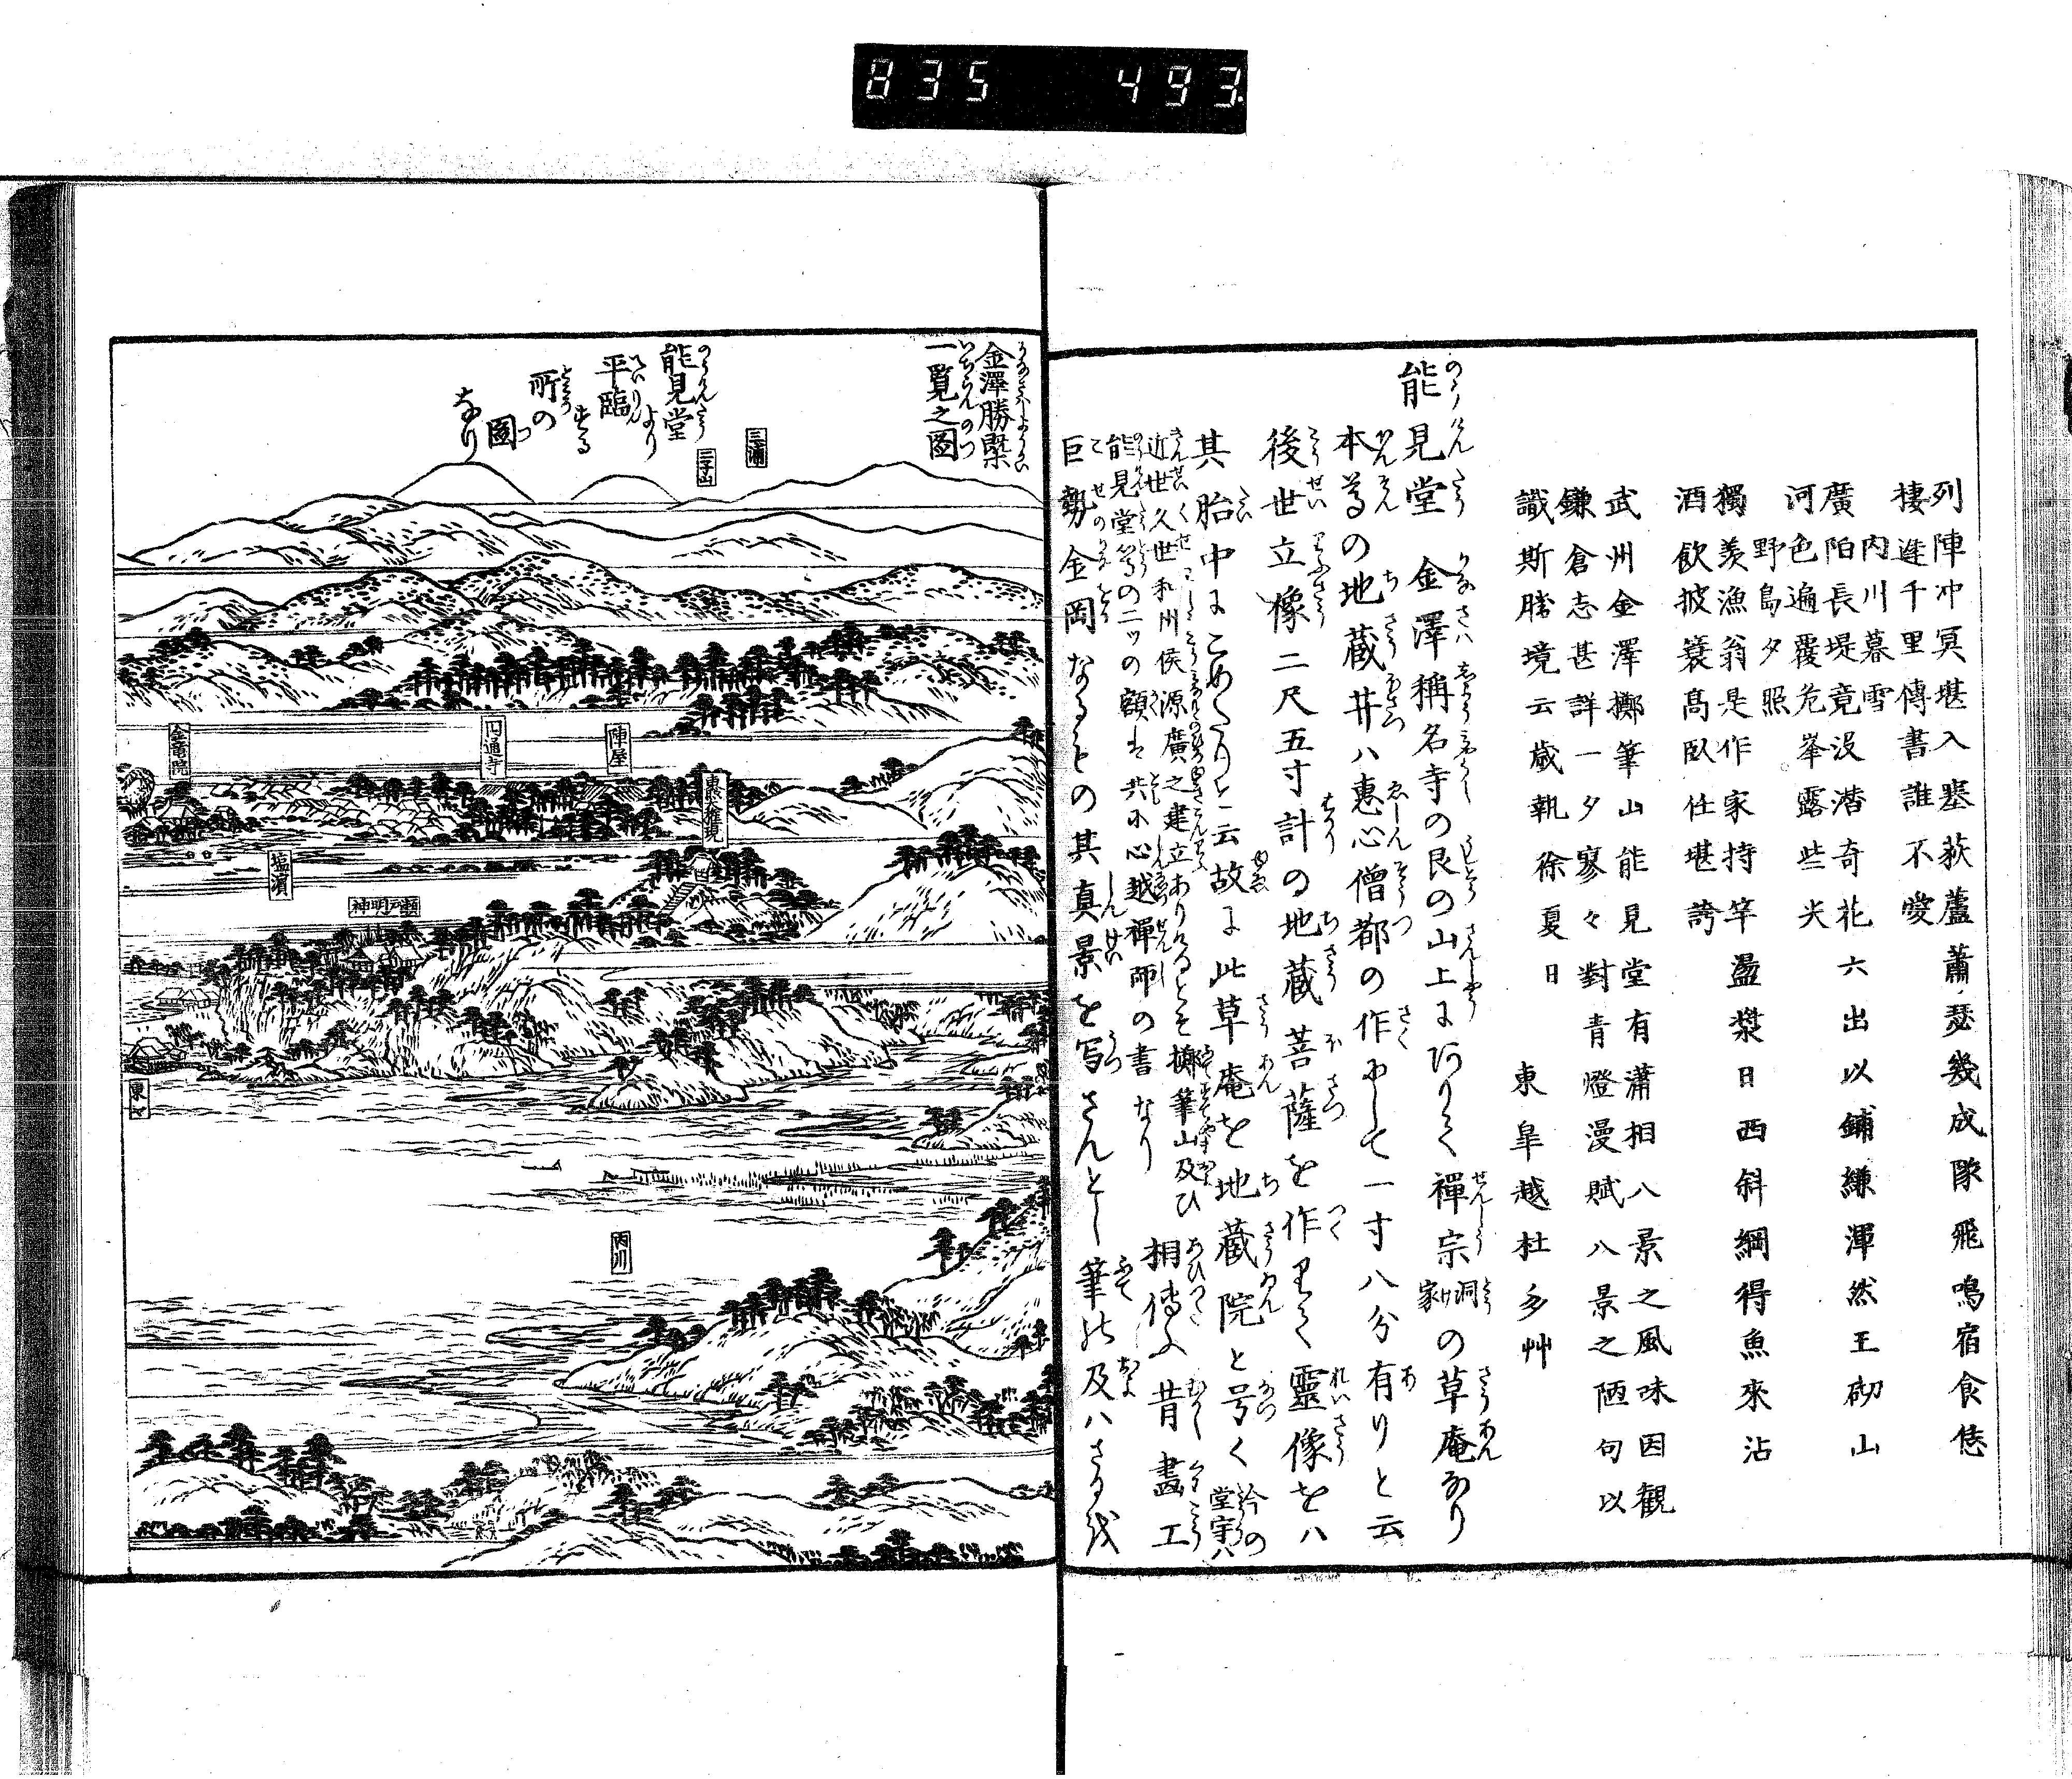 835 493
列陣冲冥堪入塞荻蘆蕭瑟幾成隊飛鳴宿食恁
棲遅千里傳書誰不愛
内川暮雪
廣陌長堤竟没潜奇花六出以鋪縑渾然玉砌山
河色遍覆危峯露些尖
野島夕照
獨羨漁翁是作家持竿盪槳日西斜網得魚來沽
酒飲披簑高臥任堪誇
武州金澤擲筆山能見堂有瀟相八景之風味因觀
鎌倉志甚詳一夕寥々對青燈漫賦八景之陋句以
識斯勝境云歳執徐夏日
東皐越杜多艸
能見堂 金澤稱名寺の艮の山上にありて禪宗洞家の草庵なり
本尊の地蔵井ハ惠心僧都の作にして一寸八分有りと云
後世立像二尺五寸計の地蔵菩薩を作りて靈像をハ
其胎中にこめたりと云故に此草庵を地蔵院と号く今の堂宇ハ
近世久世和州侯源廣之建立ありけるとそ擲筆山及ひ
能見堂等の二ツの額は共に心越禪師の書なり
相傳ふ昔畫工
巨勢金岡なるもの其真景を写さんとし筆の及ハさるを
金澤勝槩
一覧之圖
能見堂より
平臨する
所の
圖
なり
三浦
三子山
金竜院
円通寺
陣屋
塩濱
瀬戸明神
内川